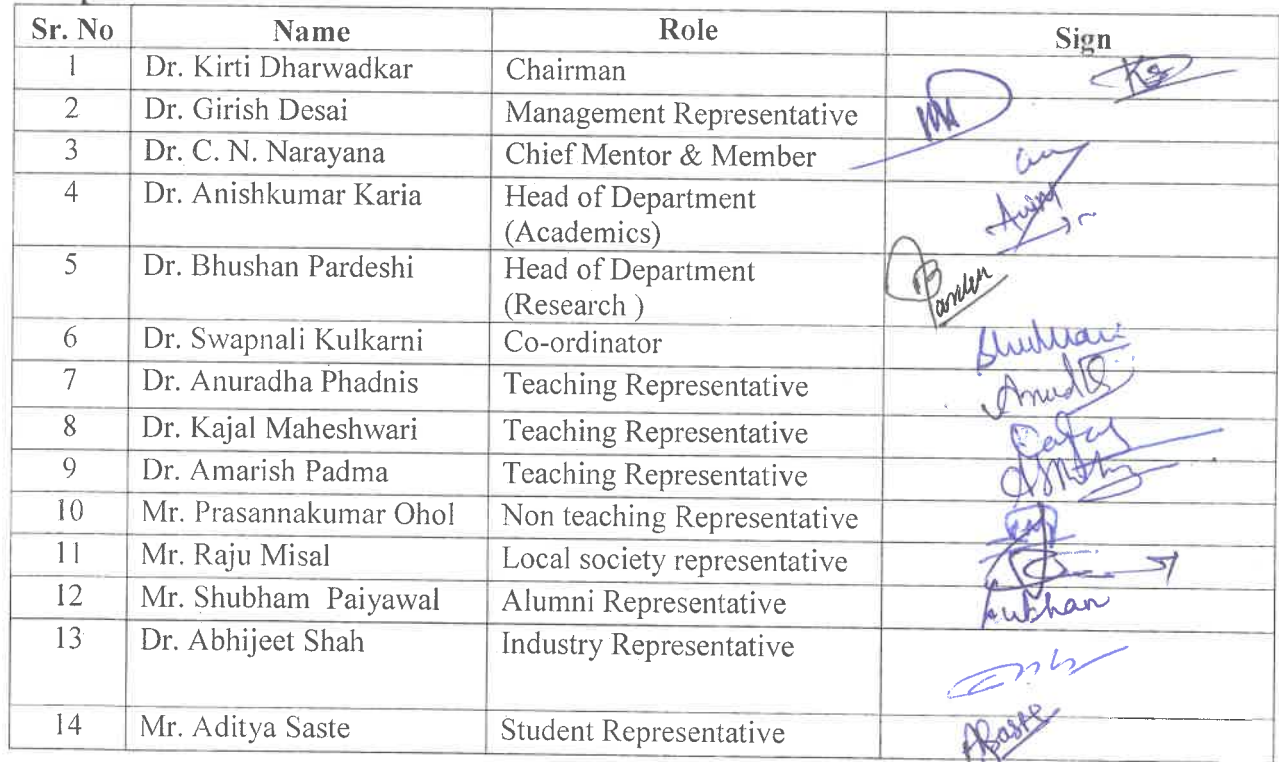 Sr. No Name Role Sign
1 Dr. Kirti Dharwadkar Chairman
2 Dr. Girish Desai Management Representative
3 Dr. C. N. Narayana Chief Mentor & Member
4 Dr. Anishkumar Karia Head of Department
(Academics)
5 Dr. Bhushan Pardeshi Head of Department
(Research )
6 Dr. Swapnali Kulkarni Co-ordinator
7 Dr. Anuradha Phadnis Teaching Representative
8 Dr. Kajal Maheshwari Teaching Representative
9 Dr. Amarish Padma Teaching Representative
10 Mr. Prasannakumar Ohol Non teaching Representative
11 Mr. Raju Misal Local society representative
12 Mr. Shubham Paiyawal Alumni Representative
13 Dr. Abhijeet Shah Industry Representative
14 Mr. Aditya Saste Student Representative